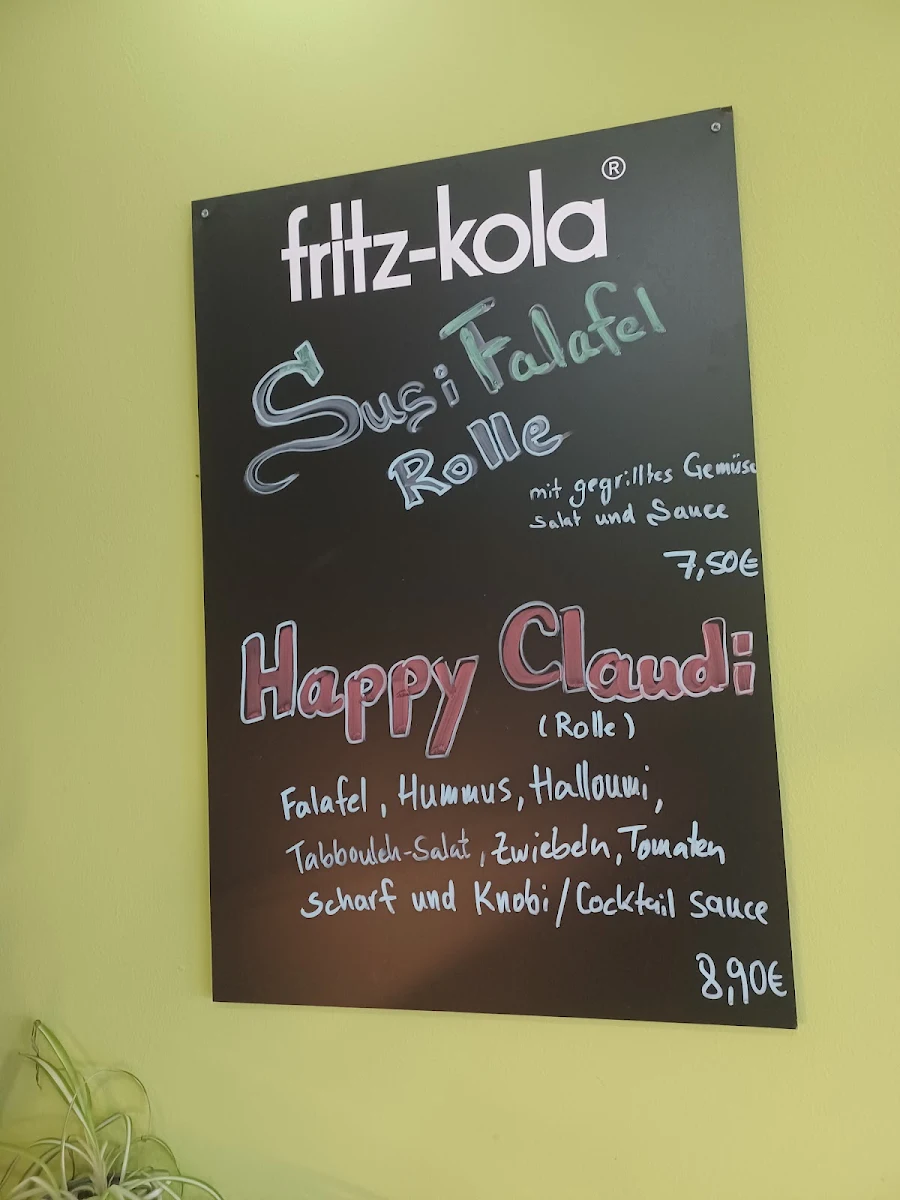 fritz-kola®
Susi Falafel
Rolle
mit gegrilltes Gemüse
Salat und Sauce
7,50€
Happy Claudi
(Rolle)
Falafel, Hummus, Halloumi,
Tabbouleh-Salat, Zwiebeln, Tomaten
Scharf und Knobi/Cocktail sauce
8,90€